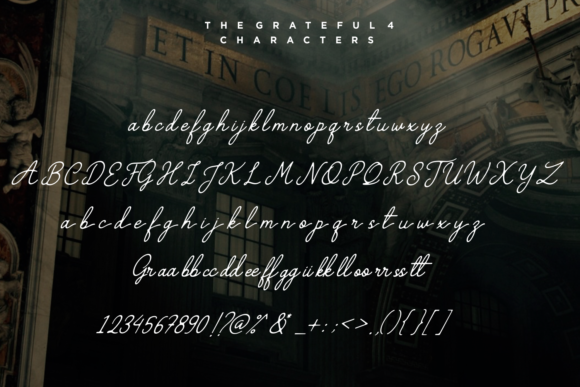 THE GRATEFUL 4
CHARACTERS
ET IN COELIS EGO ROGAVI PRO
abcdefghijklmnopqrstuwxyz
ABCDEFGHIJKLMNOPQRSTUWXYZ
abcdefghijklmnopqrstuwxyz
Graabbccddeeffggiikklloorrsstt
1234567890!?@%&*_+:;<>.,(){}[]